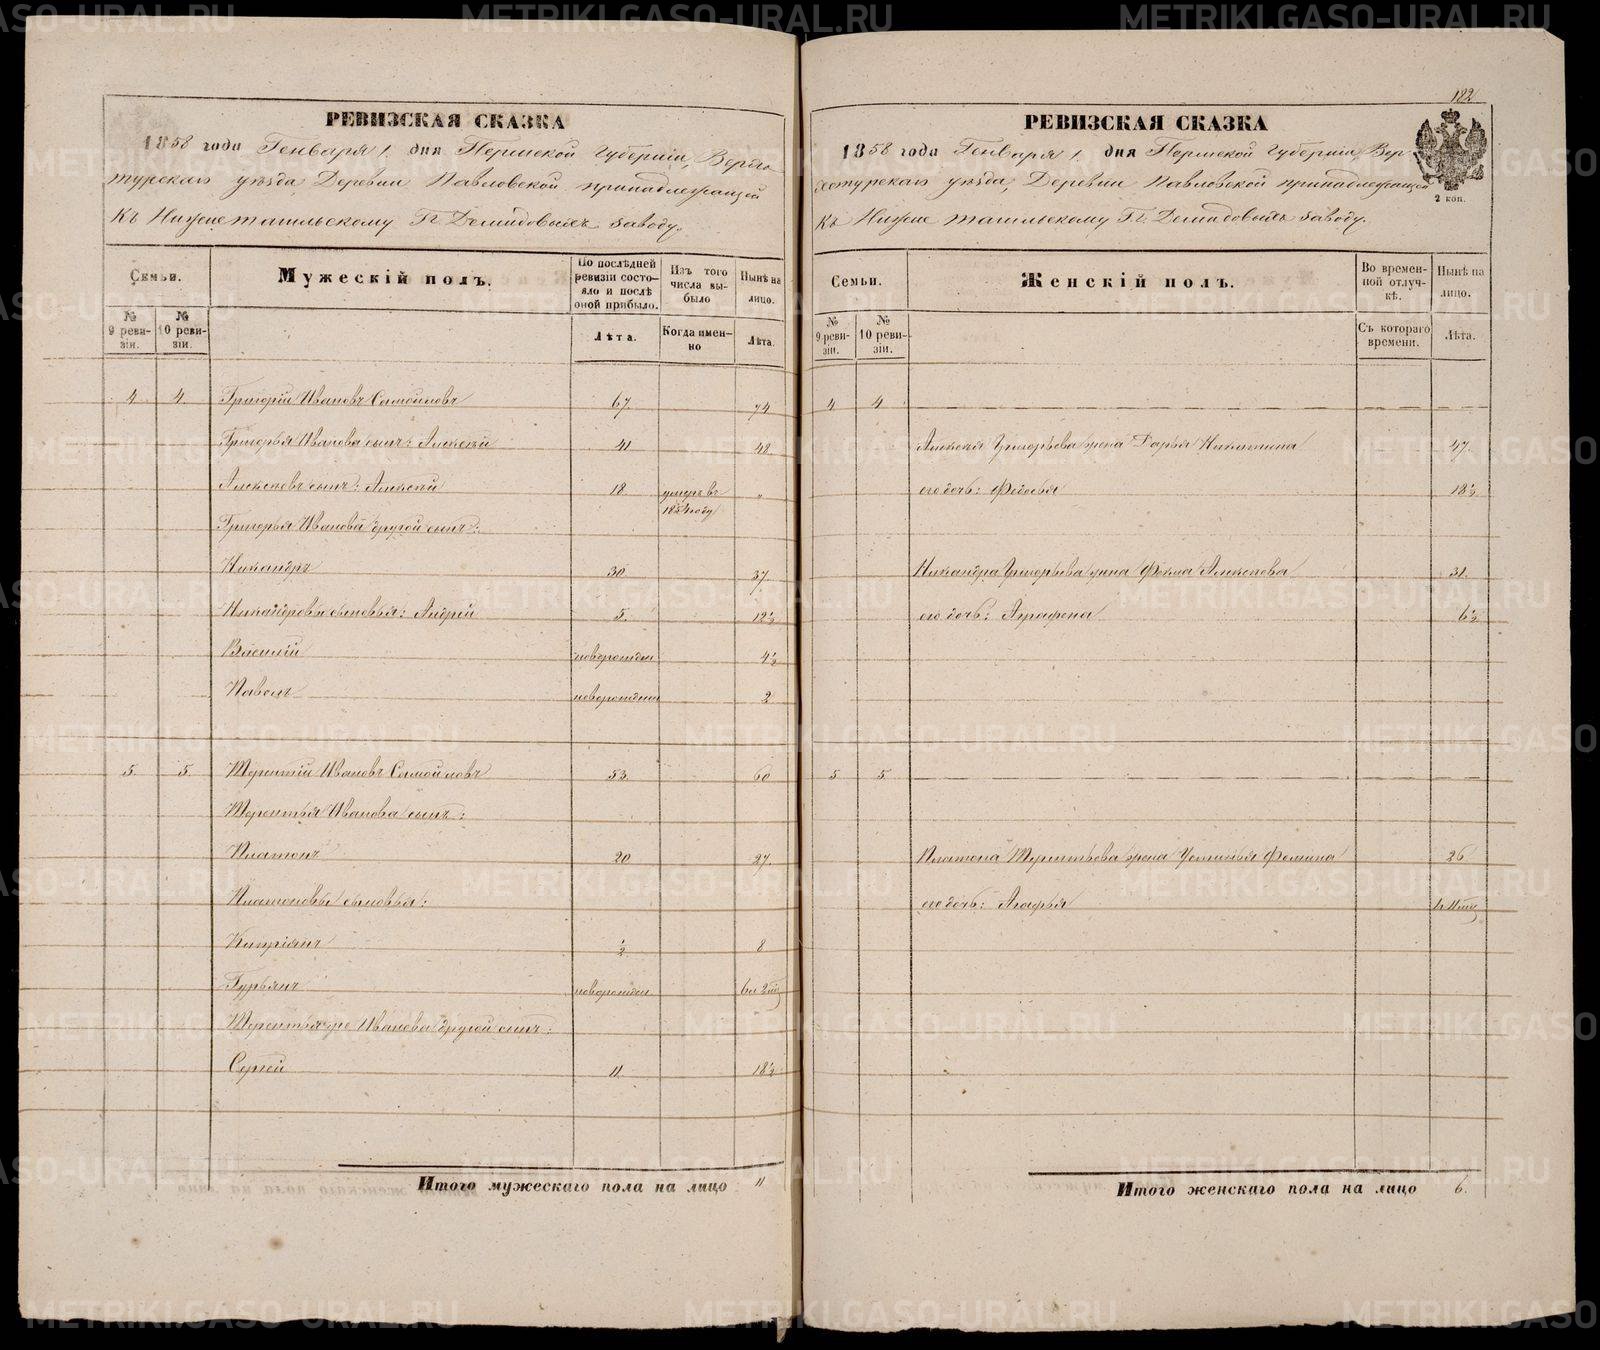 РЕВИЗСКАЯ СКАЗКА
1858 года Генваря 1. дня Пермской Губерніи, Верхо-
турскаго уѣзда Деревни Павловской принадлежащей
Къ Нижнетагильскому Гг. Демидовыхъ заводу.
Семьи.
№ 9 ревизіи.
№ 10 ревизіи.
Мужескій полъ.
По послѣдней ревизіи состояло и послѣ оной прибыло.
Лѣта.
Изъ того числа выбыло
Когда именно
Нынѣ на лицо.
Лѣта.
4 4 Григорій Ивановъ Самойловъ 67. 74
Григорья Иванова сынъ: Алексѣй 41 48.
Алексѣевъ сынъ: Алексѣй 18 умеръ въ 1854 году "
Григорья Иванова другой сынъ:
Никандръ 30 37.
Никандровы сыновья: Андрей 5. 12½
Василій новорожден 4½
Павелъ новорожден 2
5. 5. Терентій Ивановъ Самойловъ 53. 60
Терентья Иванова сынъ:
Платонъ 20 27.
Платоновы сыновья:
Кипріянъ ½ 8
Гурьянъ новорожден. 6л 2мц
Терентья же Иванова другой сынъ:
Сергей 11. 18½
Итого мужескаго пола на лицо 11
182
РЕВИЗСКАЯ СКАЗКА
1858 года Генваря 1. дня Пермской Губерніи, Вер-
хотурскаго уѣзда, Деревни Павловской принадлежащей
Къ Нижнетагильскому Гг. Демидовыхъ заводу.
2 коп.
Семьи.
№ 9 ревизіи.
№ 10 ревизіи.
Женскій полъ.
Во временной отлучкѣ.
Съ котораго времени.
Нынѣ на лицо.
Лѣта.
4 4
Алексѣя Григорьева жена Дарья Никитина 47.
его дочь: Федосья 18½
Никандра Григорьева жена Фекла Алексѣева 31.
его дочь: Аграфена 6½
5 5
Платона Терентьева жена Устинья Фомина 26
его дочь: Агафья
Итого женскаго пола на лицо 6.
METRIKI.GASO-URAL.RU